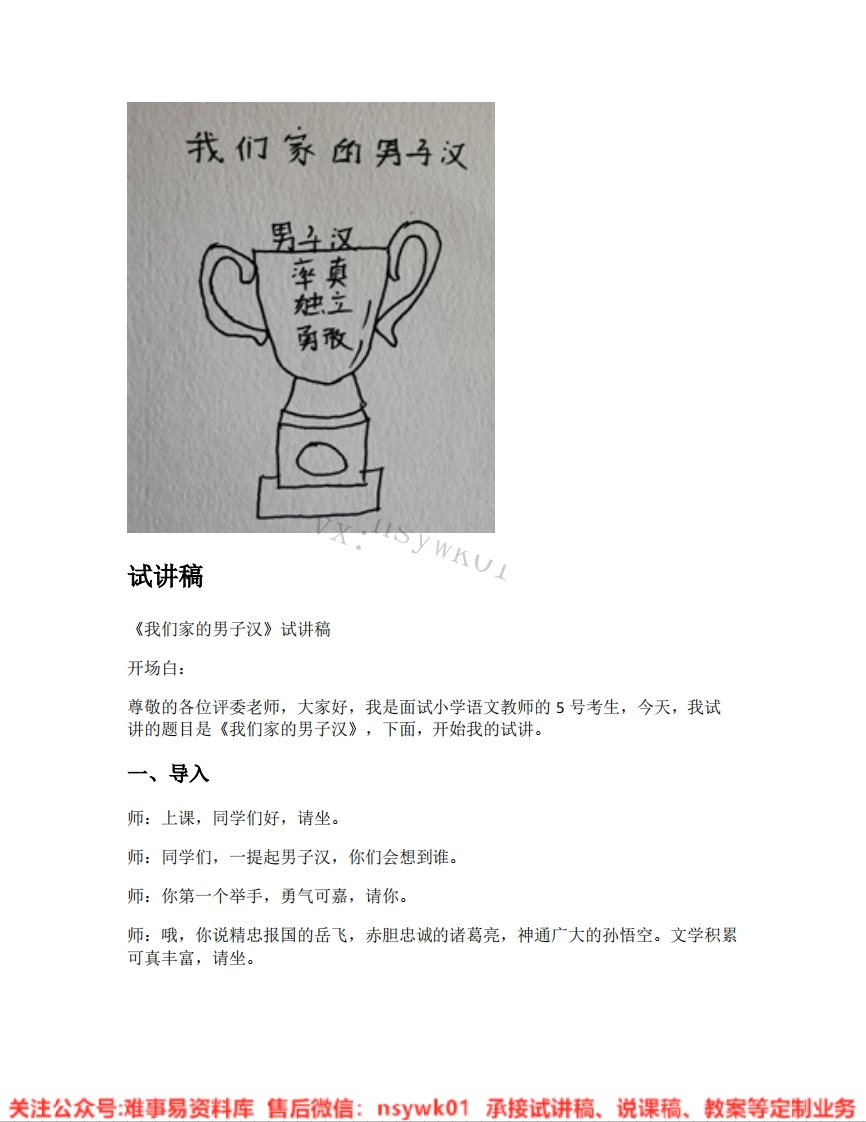 我们家的男子汉
男子汉
率真
独立
勇敢
vx:nsywk01
试讲稿
《我们家的男子汉》试讲稿
开场白：
尊敬的各位评委老师，大家好，我是面试小学语文教师的 5 号考生，今天，我试
讲的题目是《我们家的男子汉》，下面，开始我的试讲。
一、导入
师：上课，同学们好，请坐。
师：同学们，一提起男子汉，你们会想到谁。
师：你第一个举手，勇气可嘉，请你。
师：哦，你说精忠报国的岳飞，赤胆忠诚的诸葛亮，神通广大的孙悟空。文学积累
可真丰富，请坐。
关注公众号:难事易资料库 售后微信：nsywk01 承接试讲稿、说课稿、教案等定制业务